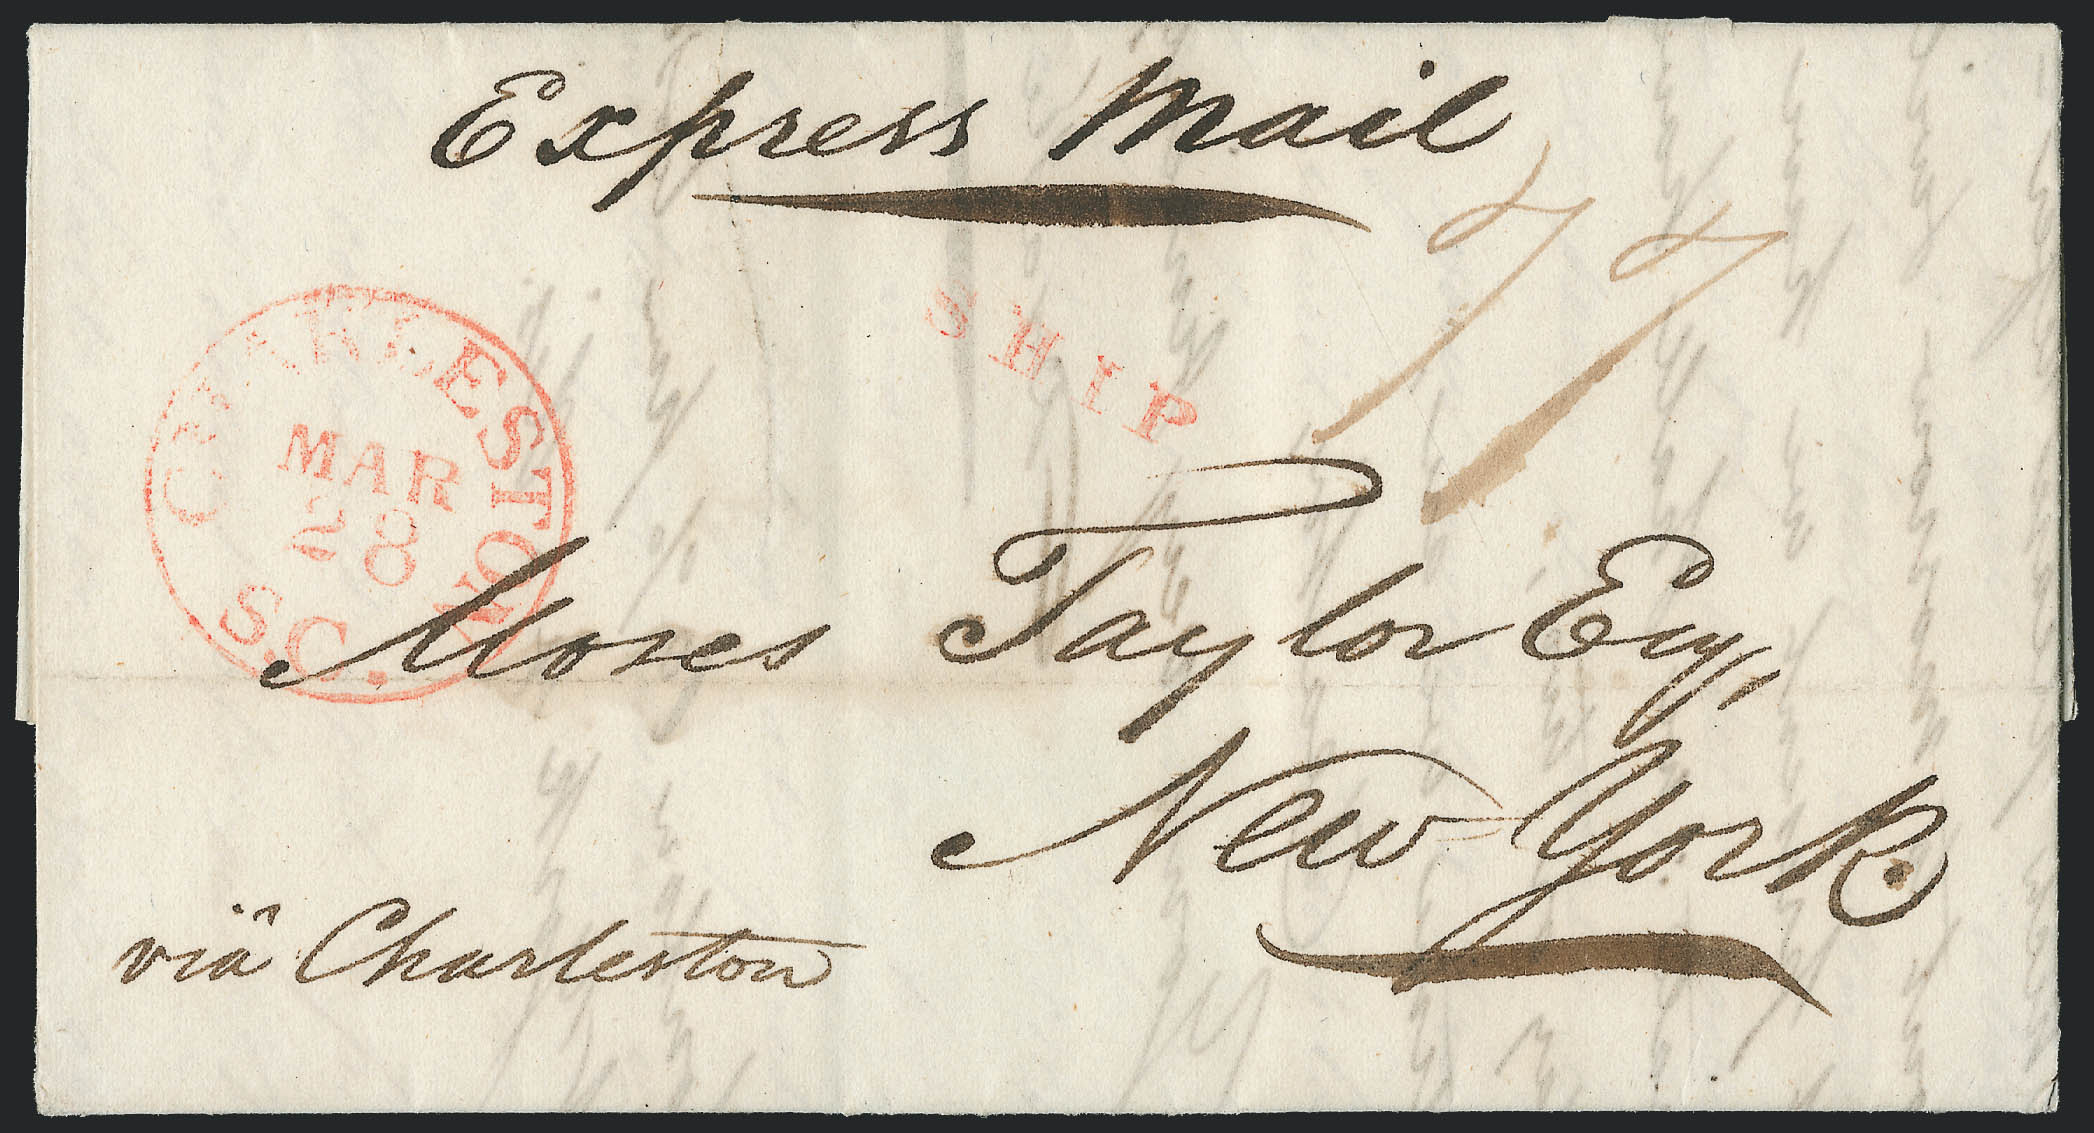 Express Mail
77
SHIP
CHARLESTON S.C.
MAR
28
Moses Taylor Esq,
New-York.
viâ Charleston